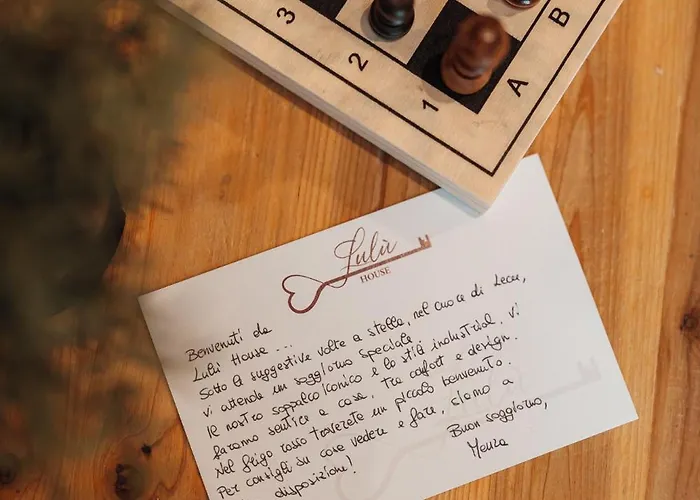 3
2
1
A
B
Lulù
HOUSE
Benvenuti da
Lulù House ...
Sotto le suggestive volte a stella, nel cuore di Lecce,
vi attende un soggiorno speciale.
Il nostro soppalco iconico e lo stile industrial, vi
faranno sentire a casa, tra comfort e design.
Nel frigo rosso troverete un piccolo benvenuto.
Per consigli su cose vedere e fare, siamo a
disposizione!
Buon soggiorno,